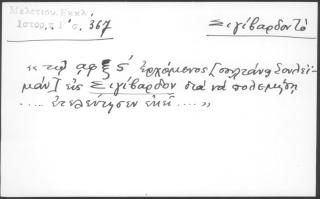 Μελετίου, Εκκλ.
Ιστορ. τ. Γ΄ σ. 367
Σιγίβαρδον τό
« τῷ ͵αφξς΄ ἐρχόμενος [σουλτάνος Σουλεϊ-
μάν] εἰς Σιγίβαρδον διὰ νὰ πολεμήσῃ
.... ἐτελεύτησεν ἐκεῖ .... »